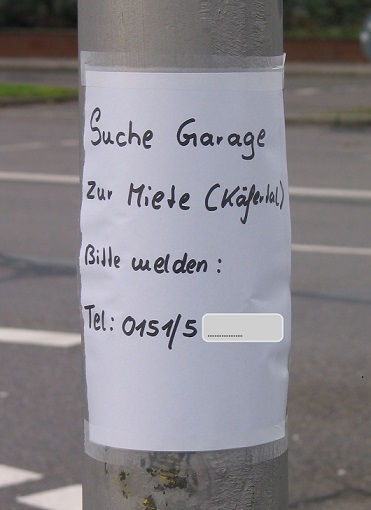 Suche Garage
zur Miete (Käfertal)
Bitte melden:
Tel: 0151/5